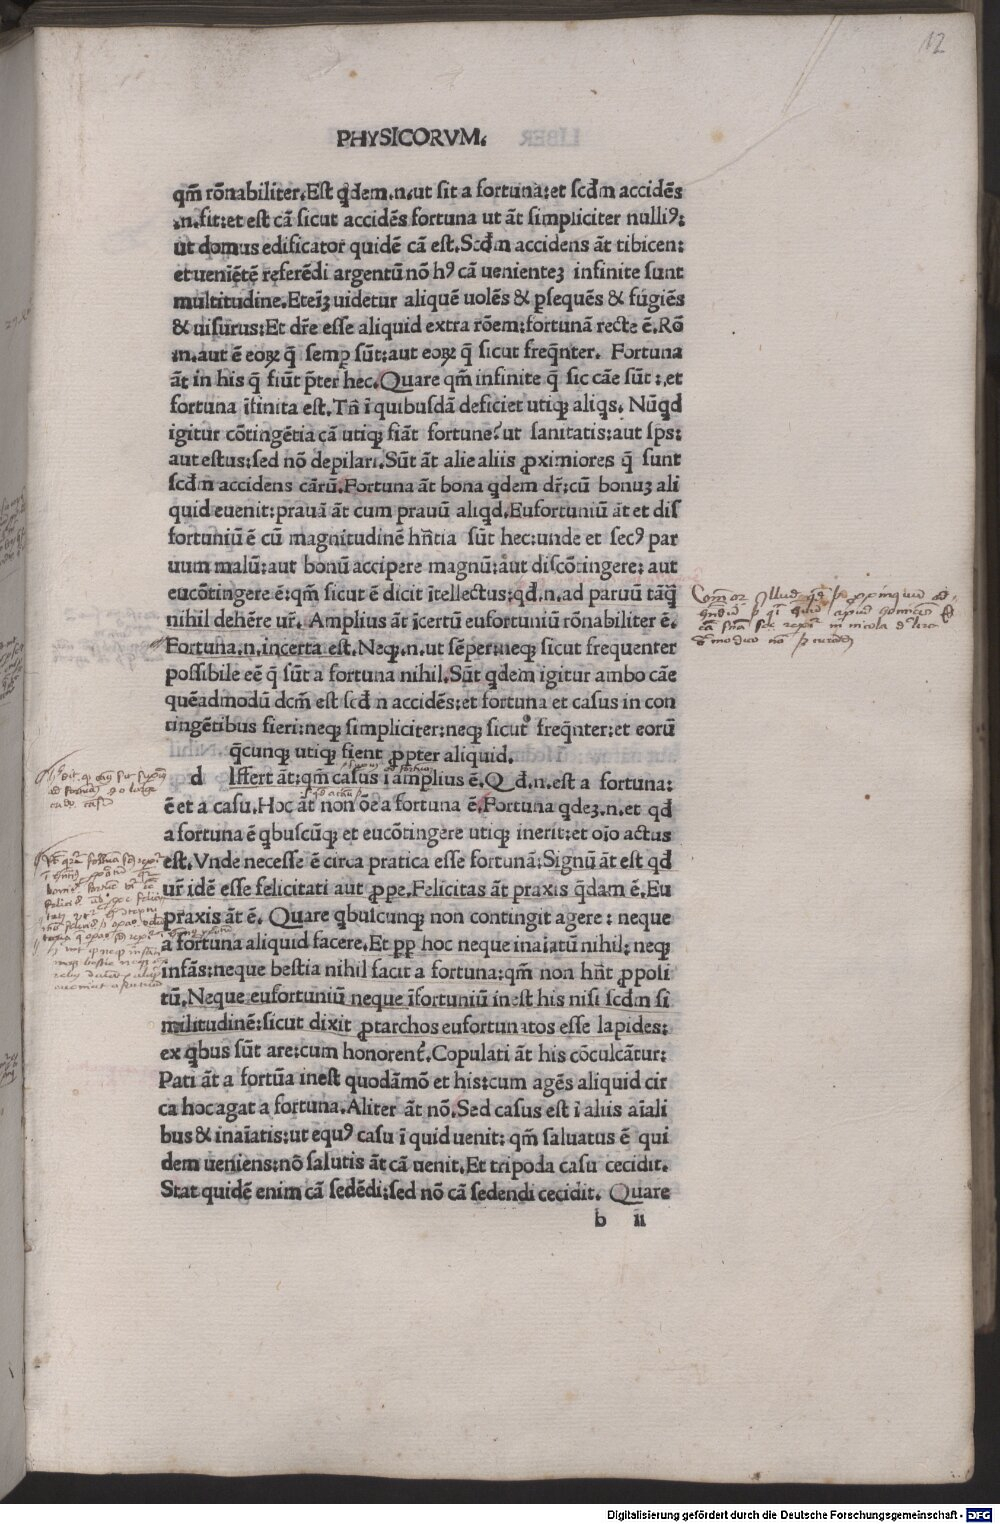 12
PHYSICORVM.
qm̄ rōnabiliter.Est q̇dem.n.ut sit a fortuna:et scd̄m accidēs
.n.fit:et est cā sicut accidēs fortuna ut āt simpliciter nulliꝰ:
ut domus edificator quidē cā est.Scd̄m accidens āt tibicen:
et ueniētē referēdi argentū nō hꝰ cā uenienteʒ infinite sunt
multitudine.Eteīʒ uidetur aliquē uolēs & ꝑsequēs & fugiēs
& uisurus:Et dr̄e esse aliquid extra rōem:fortunā recte ē.Rō
.n.aut ē eoꝝ q̄ semꝑ sūt:aut eoꝝ q̄ sicut freq̄nter. Fortuna
āt in his q̄ fiūt p̄ter hec.Quare qm̄ infinite q̄ sic cāe sūt:,et
fortuna īfinita est.Tn̄ ī quibusdā deficiet utiqꝫ aliqs. Nūqd
igitur cōtingētia cā utiqꝫ fiāt fortune?ut sanitatis:aut sp̄s:
aut estus:sed nō depilari.Sūt āt alie aliis ꝓximiores q̄ sunt
scd̄m accidens cārū.Fortuna āt bona qdem dr̄:cū bonuʒ ali
quid euenit:prauā āt cum prauū aliqd.Eufortuniū āt et dis
fortuniū ē cū magnitudinē hn̄tia sūt hec:unde et secꝰ par
uum malū:aut bonū accipere magnū:aut discōtingere: aut
eucōtingere ē:qm̄ sicut ē dicit ītellectus:qd̄.n.ad paruū tāq̄
nihil dehēre ur̄. Amplius āt īcertū eufortuniū rōnabiliter ē.
Fortuna.n.incerta est.Neqꝫ.n.ut sēper:neqꝫ sicut frequenter
possibile eē q̄ sūt a fortuna nihil.Sūt qdem igitur ambo cāe
quēadmodū dcm̄ est scd̄ n accidēs:et fortuna et casus in con
tingētibus fieri:neqꝫ simpliciter:neqꝫ sicut freq̄nter:et eorū
q̄cunqꝫ utiqꝫ fient ꝓpter aliquid.
d Iffert āt:qm̄ casus ī amplius ē.Q d̄.n.est a fortuna:
ē et a casu.Hoc āt non ōe a fortuna ē.Fortuna qdeʒ.n.et qd
a fortuna ē qbuscūqꝫ et eucōtingere utiqꝫ inerit:et oīo actus
est.Vnde necesse ē circa pratica esse fortunā:Signū āt est qd
ur̄ idē esse felicitati aut ꝓpe.Felicitas āt praxis q̄dam ē.Eu
praxis āt ē. Quare qbuscunqꝫ non contingit agere: neque
a fortuna aliquid facere.Et ꝓp hoc neque inaiatū nihil: neqꝫ
infās:neque bestia nihil facit a fortuna:qm̄ non hn̄t ꝓpoli
tū.Neque eufortuniū neque īfortuniū inest his nisi scd̄m si
militudinē:sicut dixit ꝓtarchos eufortunatos esse lapides:
ex qbus sūt are:cum honorent̄.Copulati āt his cōculcātur:
Pati āt a fortūa inest quodāmō et his:cum agēs aliquid cir
ca hoc agat a fortuna.Aliter āt nō.Sed casus est ī aliis aīali
bus & inaīatis:ut equꝰ casu ī quid uenit: qm̄ saluatus ē qui
dem ueniens:nō salutis āt cā uenit.Et tripoda casu cecidit.
Stat quidē enim cā sedēdi:sed nō cā sedendi cecidit. Quare
b ii
Digitalisierung gefördert durch die Deutsche Forschungsgemeinschaft - DFG